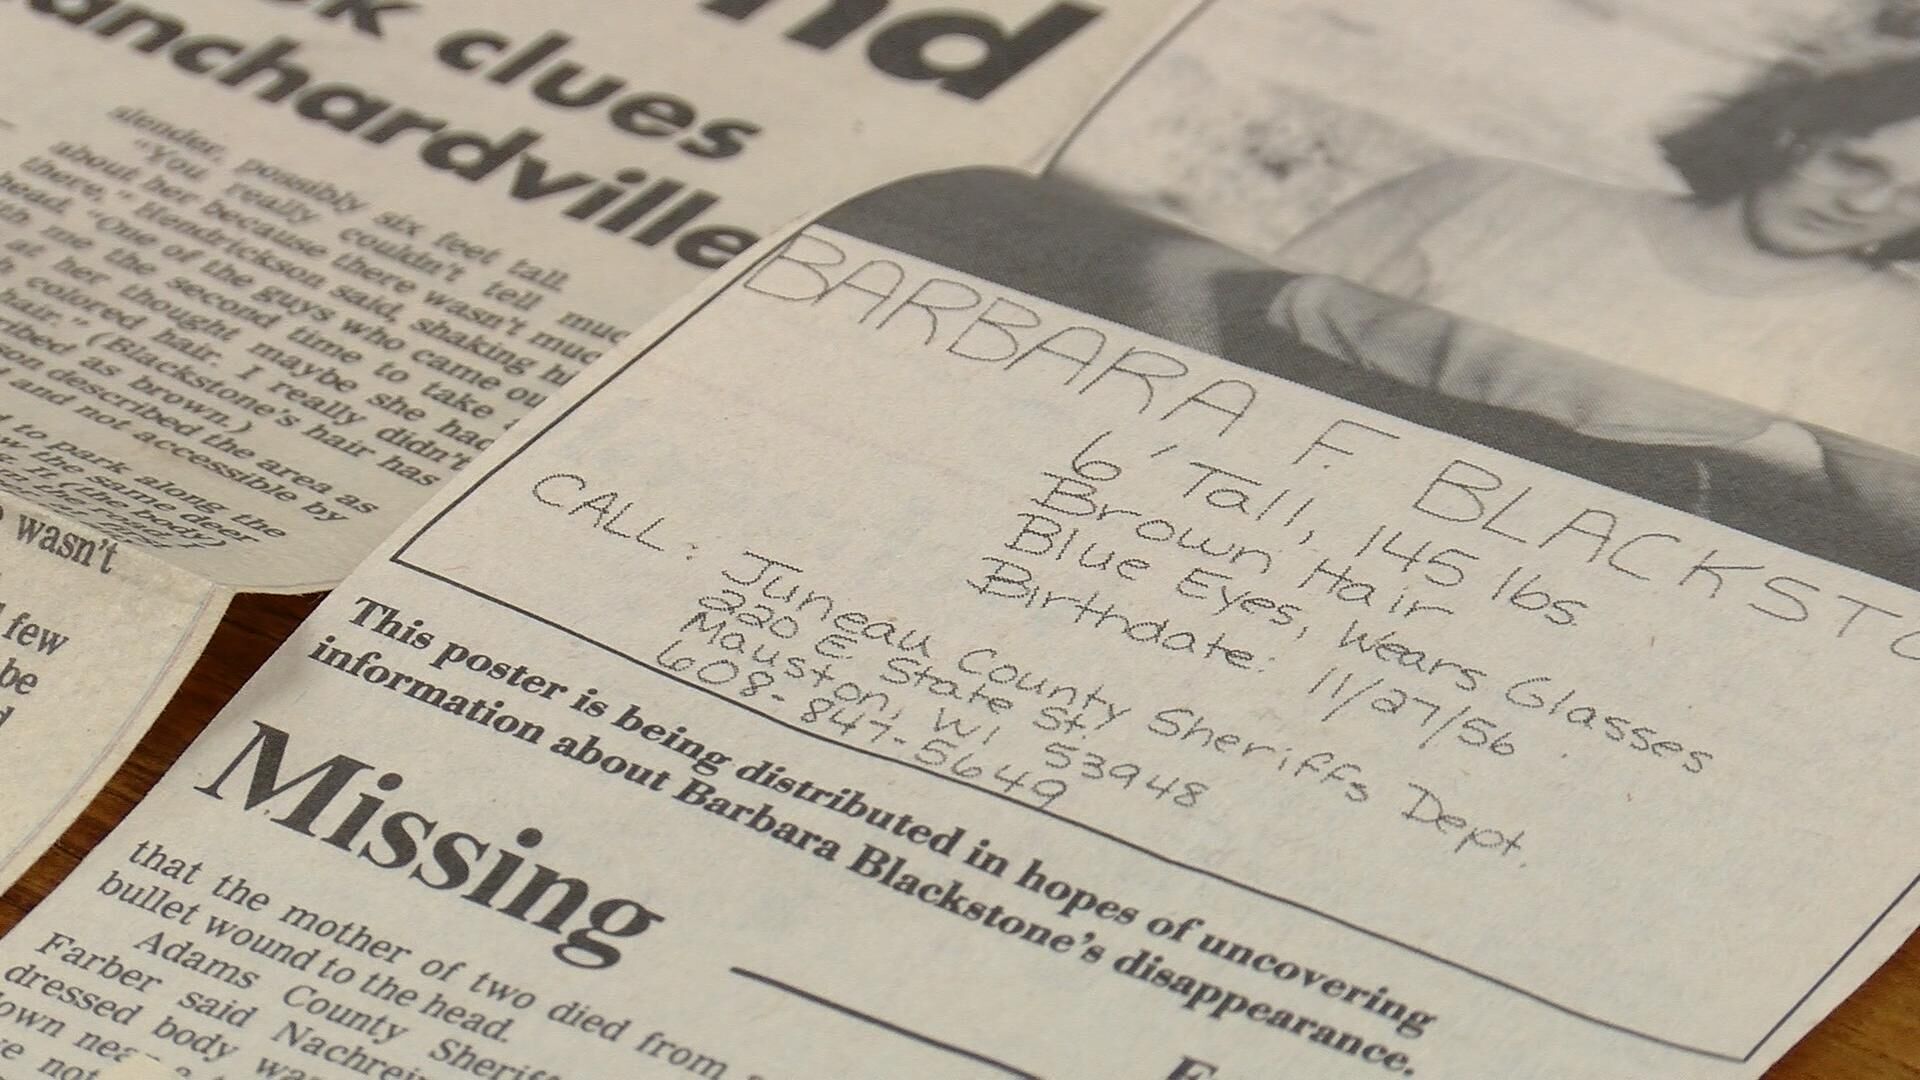 nd
k clues
anchardville
slender, possibly six feet tall.
"You really couldn't tell much
about her because there wasn't much
there," Hendrickson said, shaking his
head. "One of the guys who came out
me the second time to take
at her thought maybe she had
colored hair. I really didn't
hair." (Blackstone's hair has
described as brown.)
son described the area as
and not accessible by
to park along the
the same deer
wasn't
few
be
BARBARA F. BLACKSTO
6' Tall, 145 lbs
Brown Hair
Blue Eyes, Wears Glasses
Birthdate: 11/27/56
CALL: Juneau County Sheriffs Dept.
220 E State St.
Mauston, WI 53948
608-847-5649
This poster is being distributed in hopes of uncovering
information about Barbara Blackstone's disappearance.
Missing
that the mother of two died from a
bullet wound to the head.
Adams County Sheriff
Farber said Nachrei
dressed body was
down near
not